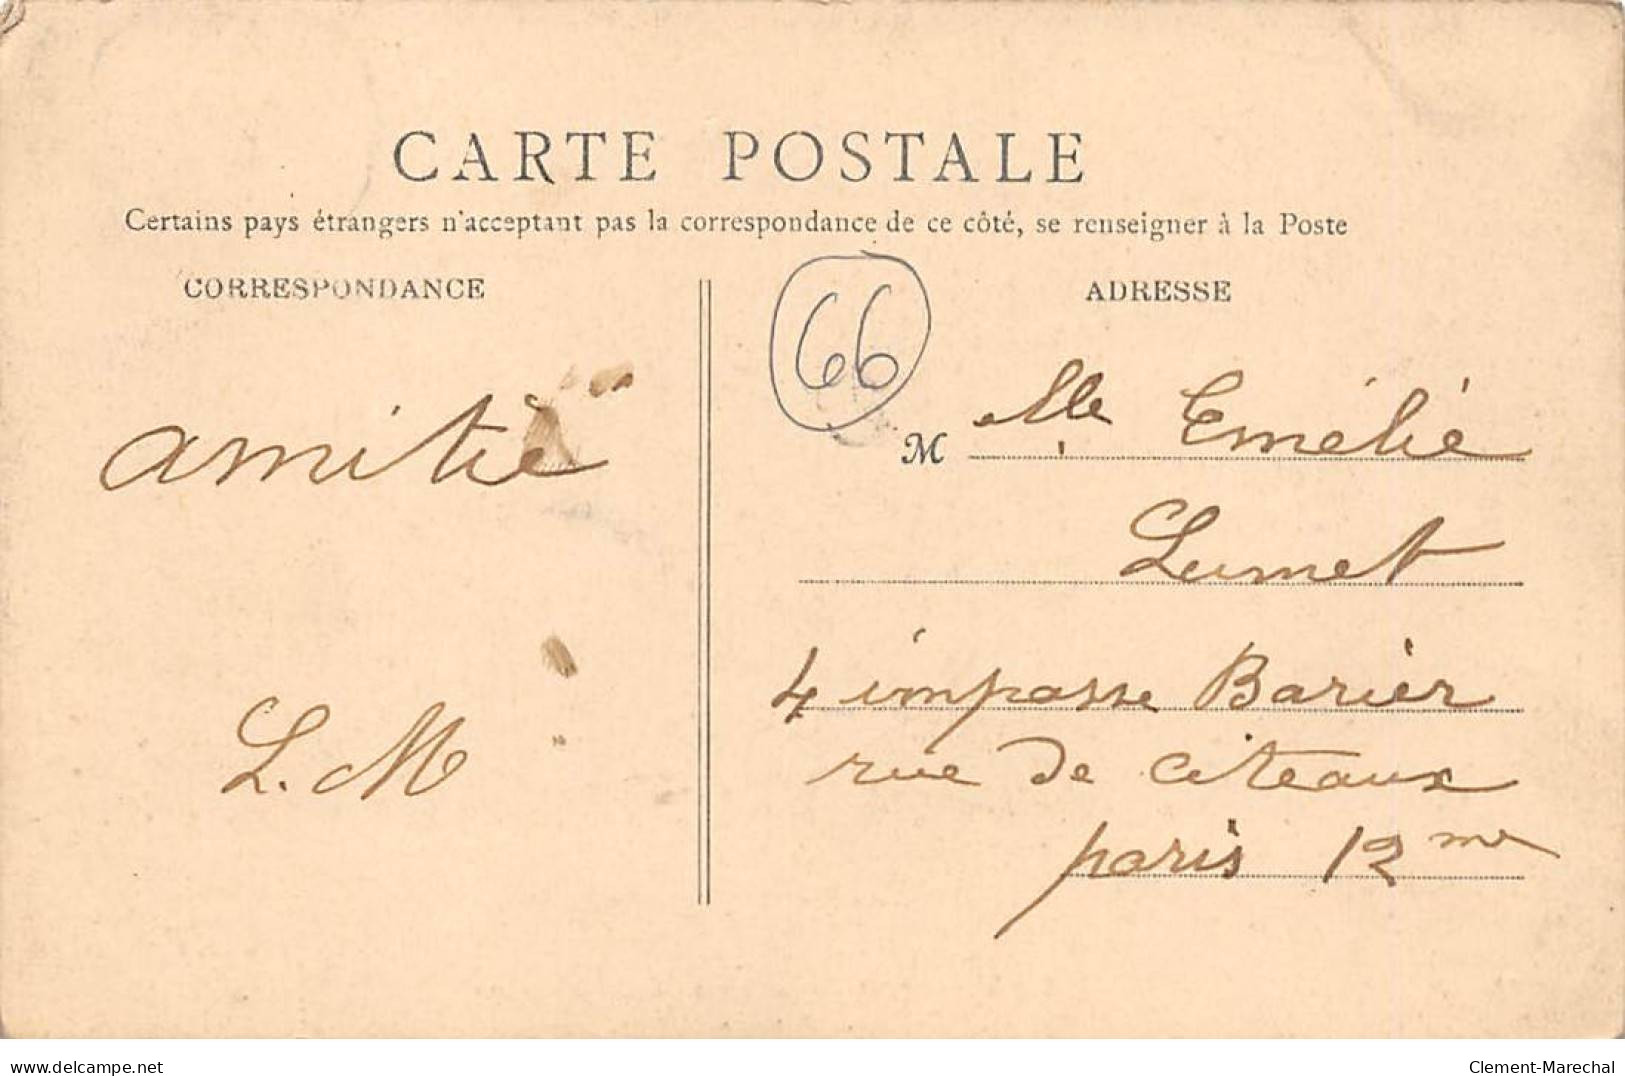 CARTE POSTALE
Certains pays étrangers n'acceptant pas la correspondance de ce côté, se renseigner à la Poste
CORRESPONDANCE
ADRESSE
66
amitié
L. M
M lle Emélie
Lumet
4 impasse Barièr
rue de Citeaux
paris 12me
www.delcampe.net
Clement-Marechal